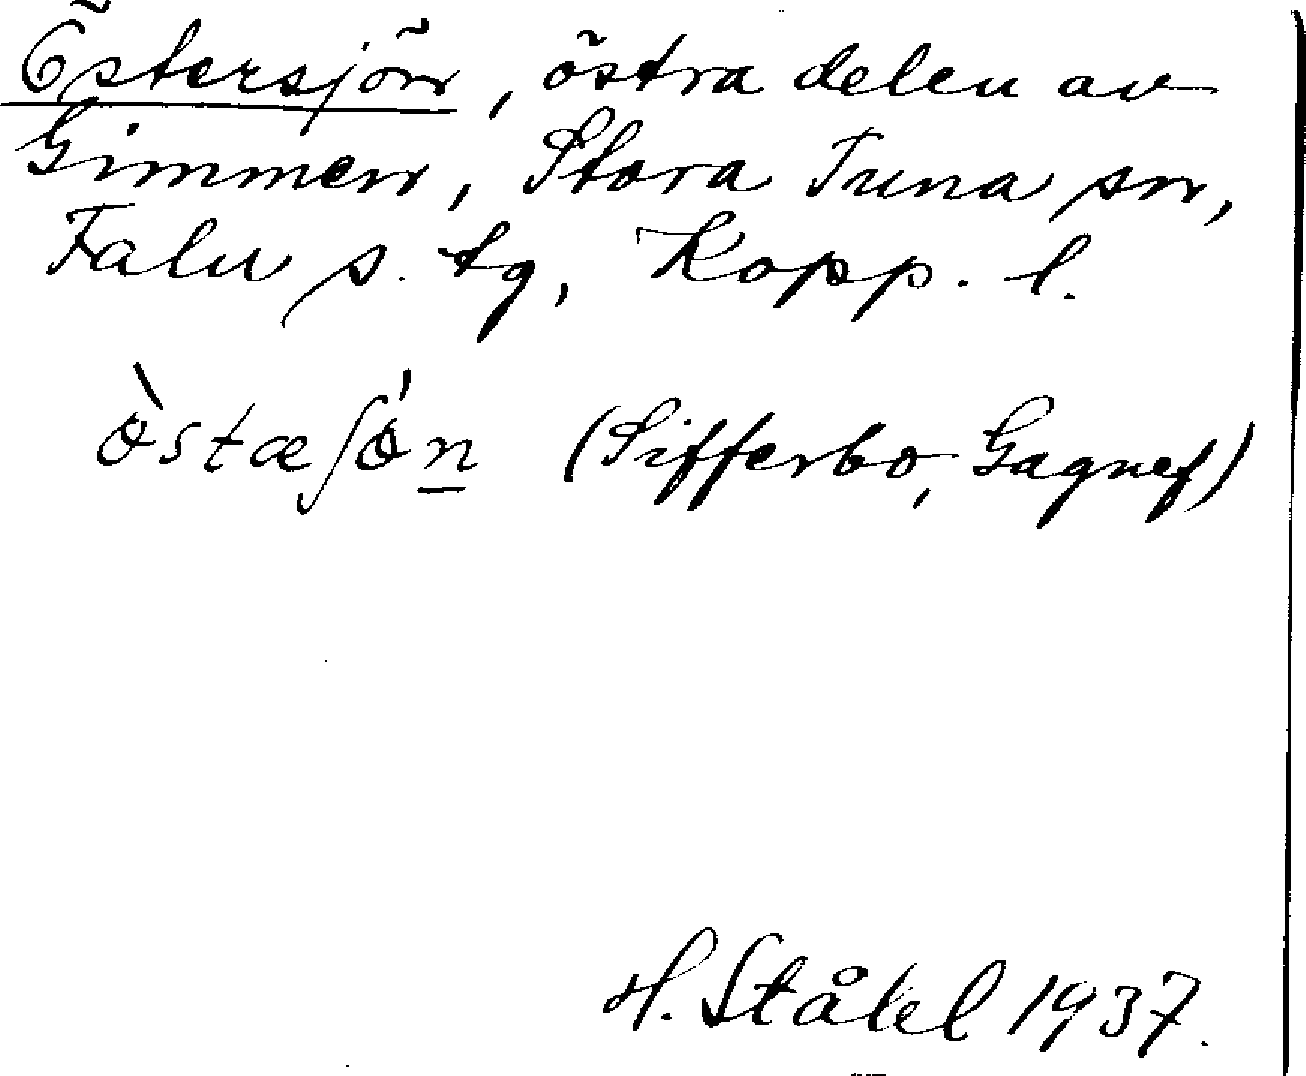 Östersjön, östra delen av
Gimmen, Stora Tuna sn,
Falu s. tg, Kopp. l.
östæʃón (Sifferbo, Gagnef)
H. Ståhl 1937.